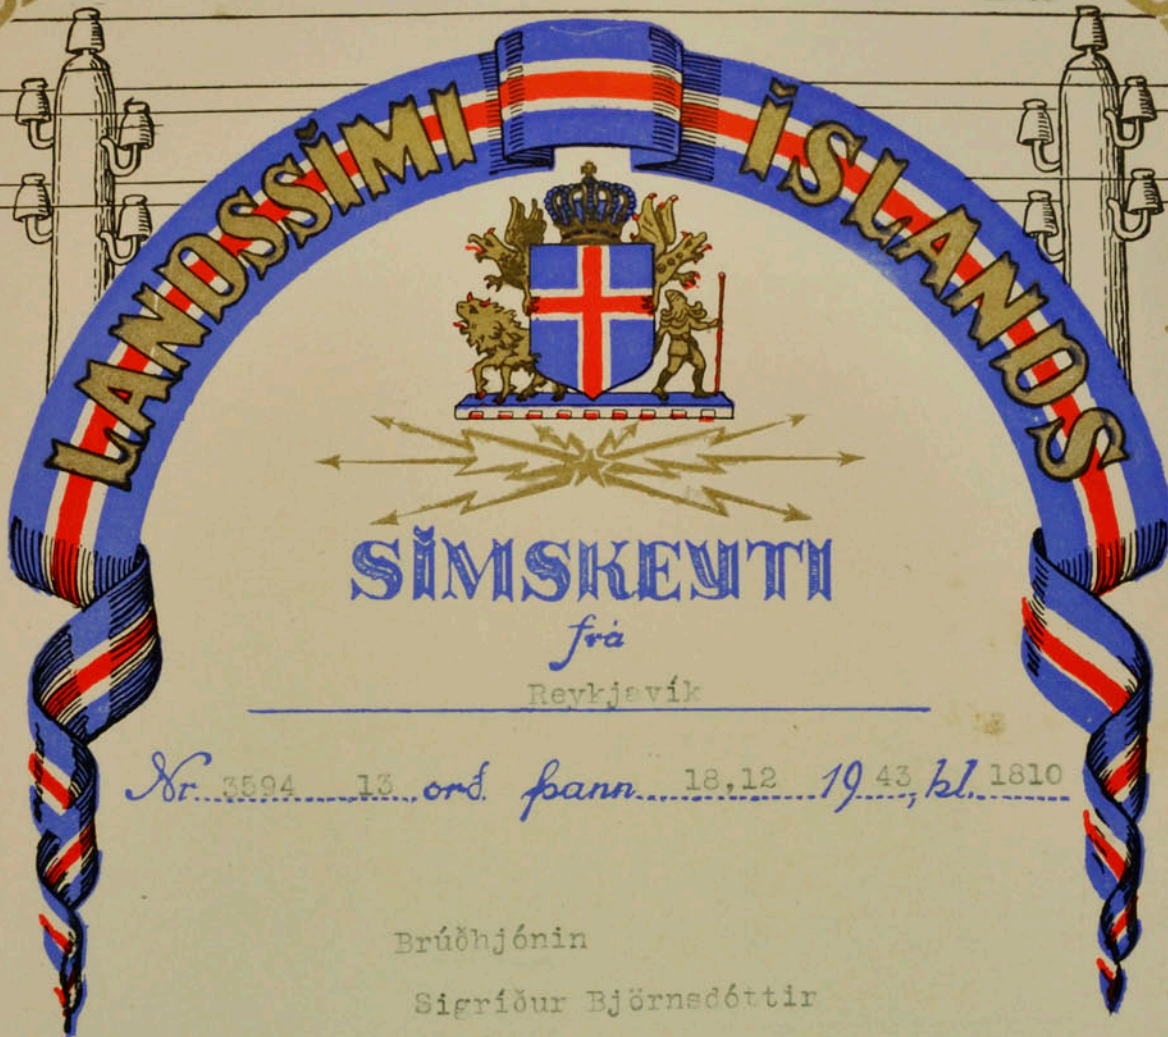 LANDSSÍMI ÍSLANDS
SÍMSKEYTI
frá
Reykjavík
Nr. 3594 13 orð. þann 18,12 1943, kl. 1810
Brúðhjónin
Sigríður Björnsdóttir